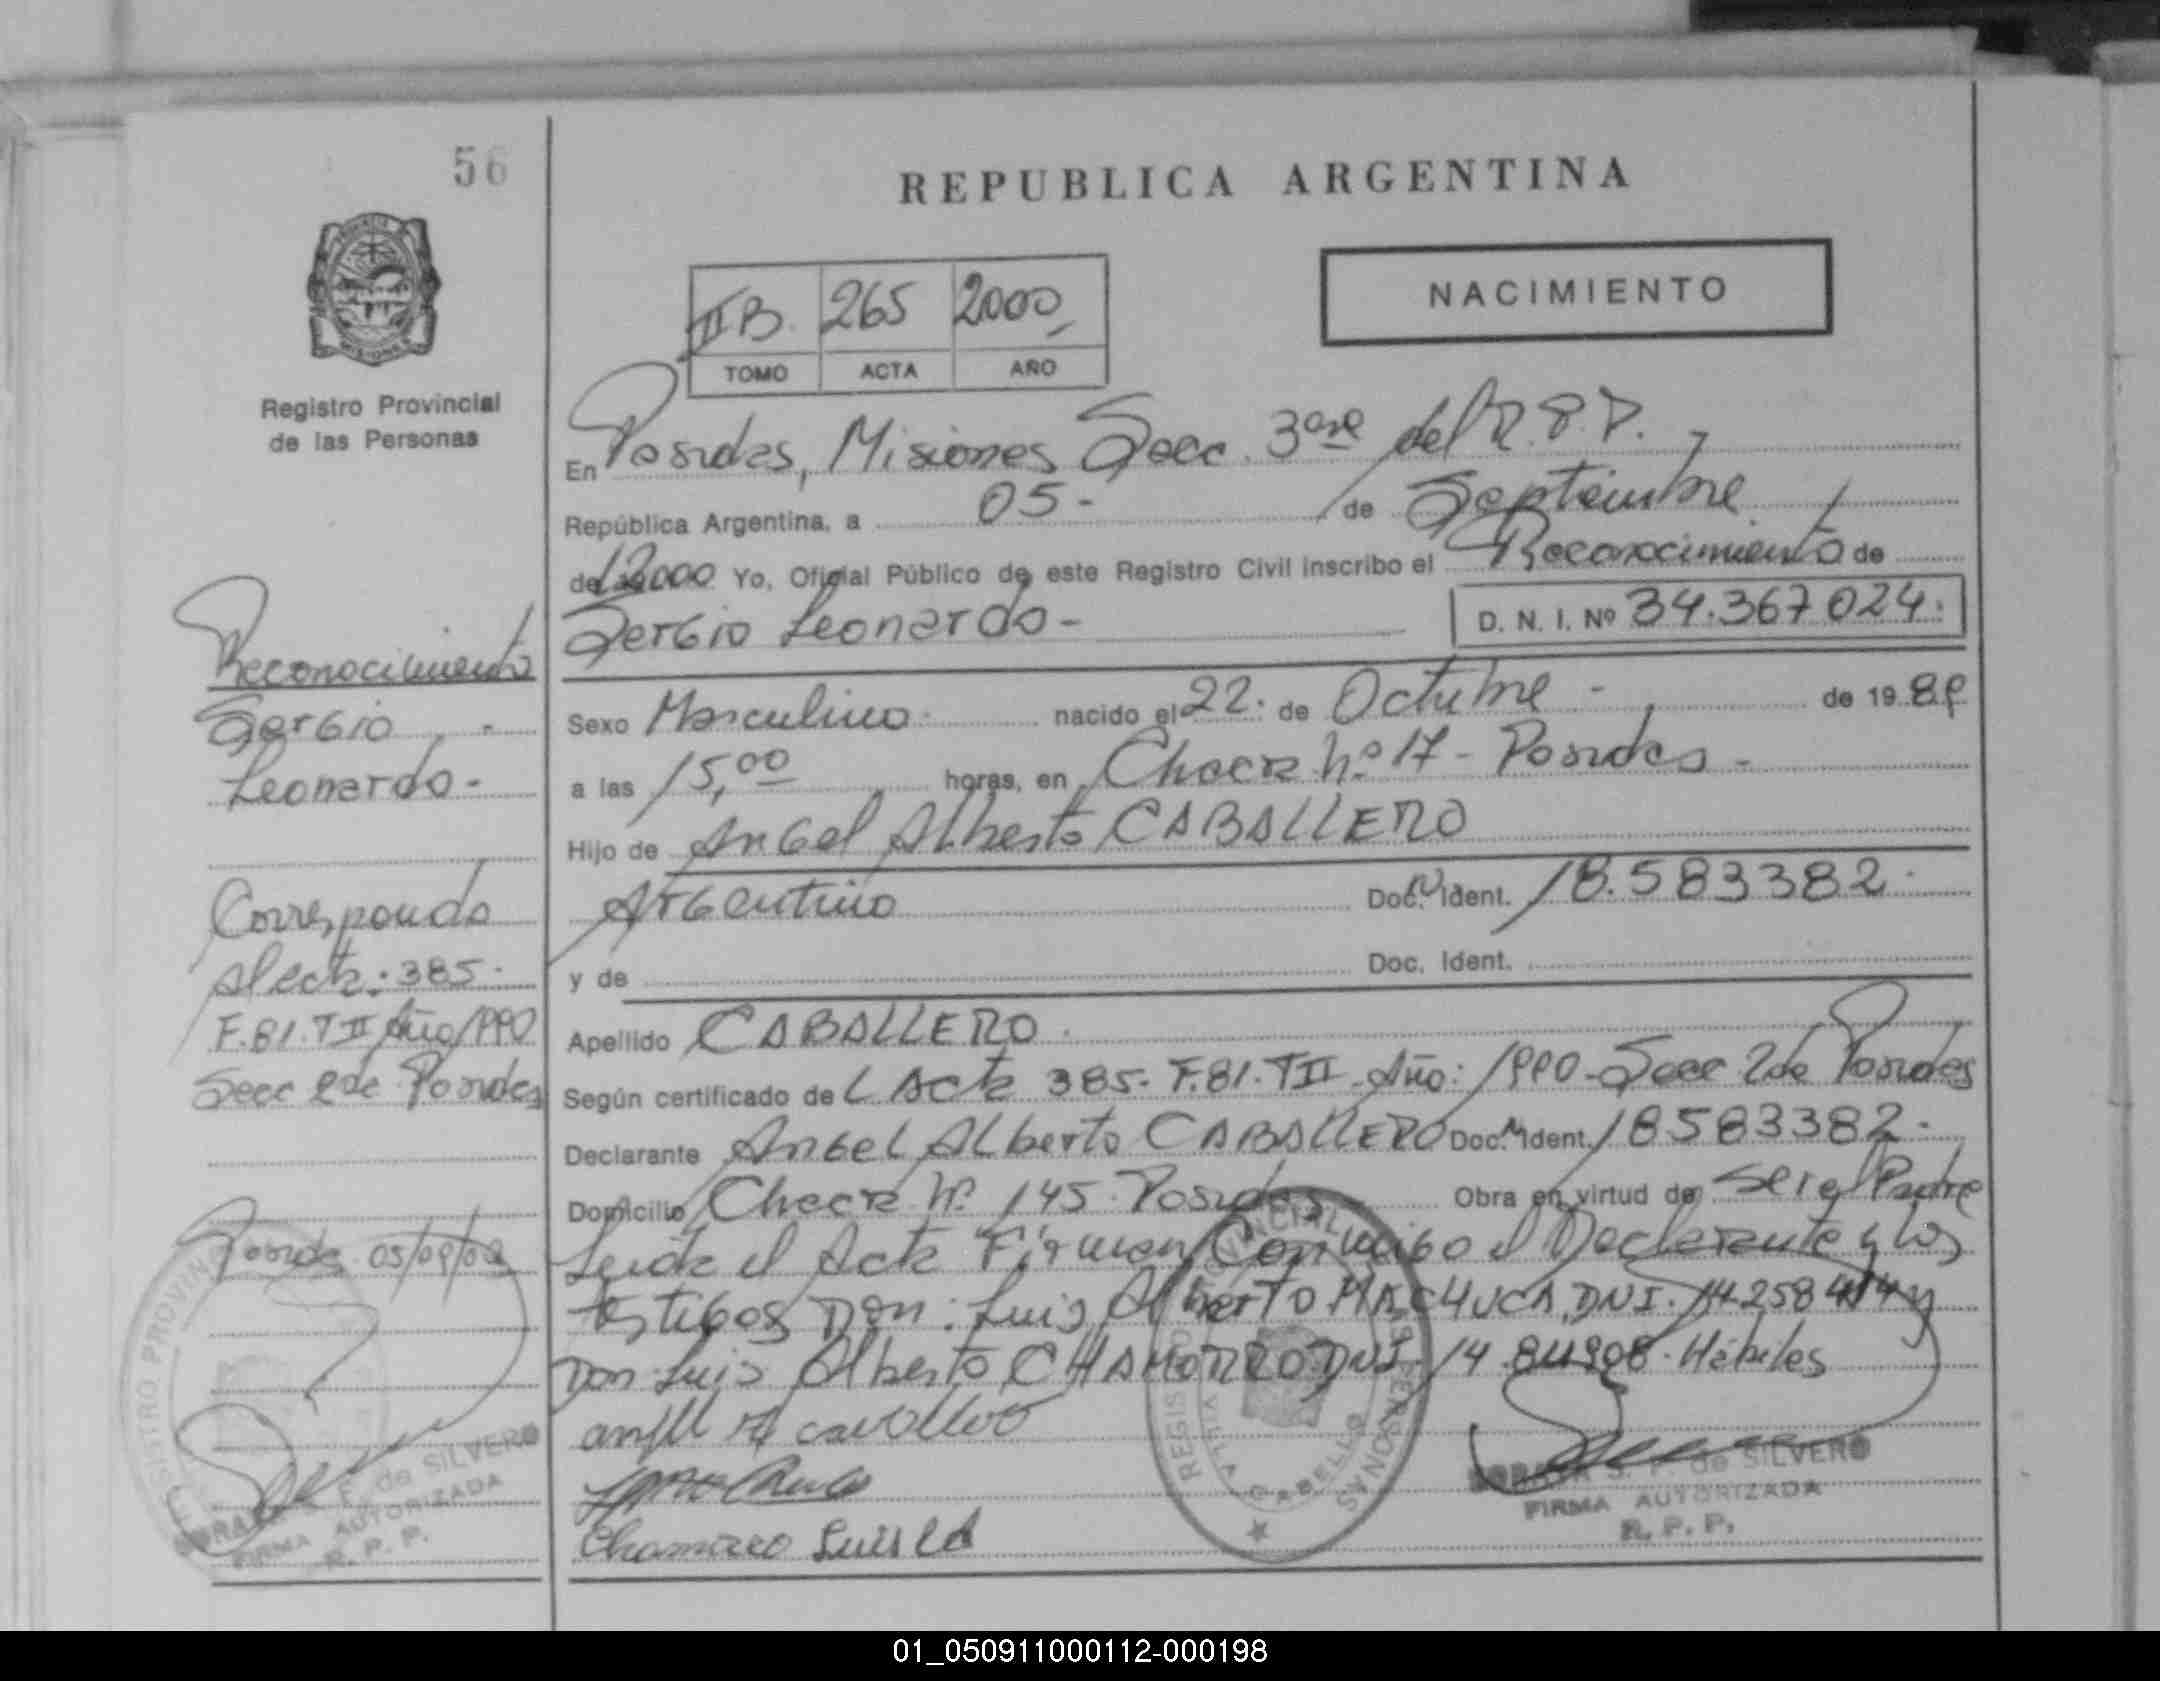 56
REPUBLICA ARGENTINA
NACIMIENTO
II B. 265 2000
TOMO ACTA AÑO
Registro Provincial
de las Personas
En Posadas, Misiones Secc. 3era del R.P.P.
República Argentina, a 05 - de Septiembre
de 2000 Yo, Oficial Público de este Registro Civil inscribo el Reconocimiento de
Sergio Leonardo -
D. N. I. Nº 34.367024.
Sexo Masculino nacido el 22 de Octubre - de 19 89
a las 15,00 horas, en Chacra Nº 17 - Posadas -
Hijo de Angel Alberto CABALLERO
Argentino Doc. Ident. 18.583382.
y de Doc. Ident.
Apellido CABALLERO
Según certificado de L Acta 385. F.81. T II Año: 1990 - Secc 2da Posadas
Declarante Angel Alberto CABALLERO Doc. Ident. 18583382.
Domicilio Chacra Nº 145. Posadas Obra en virtud de ser el Padre
Leida el Acta Firman Conmigo el Declarante y los
testigos Don: Luis Alberto MACHUCA DNI. 14258414 y
Don Luis Alberto CHAMORRO DNI. 14.811908. Hábiles
Chamorro Luis
Reconocimiento
Sergio -
Leonardo -
Corresponde
Al acta: 385.
F.81. T II Año 1990
Secc 2da Posadas
Posadas 05/09/00
REGISTRO PROVINCIAL DE LAS PERSONAS
VILLA CABELLO
S. F. de SILVERO
FIRMA AUTORIZADA
R. P. P.
SORAYA S. F. de SILVERO
FIRMA AUTORIZADA
R. P. P.
01_050911000112-000198